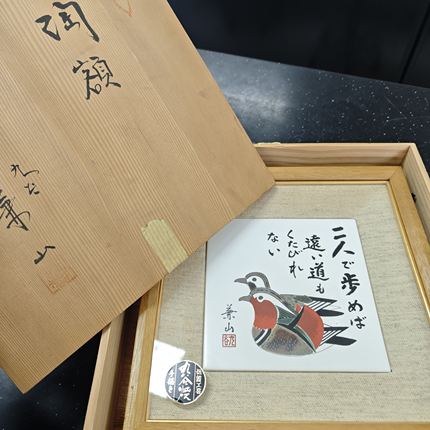 陶額
九谷 兼山
二人で歩めば
遠い道も
くたびれ
ない
兼山
九谷焼